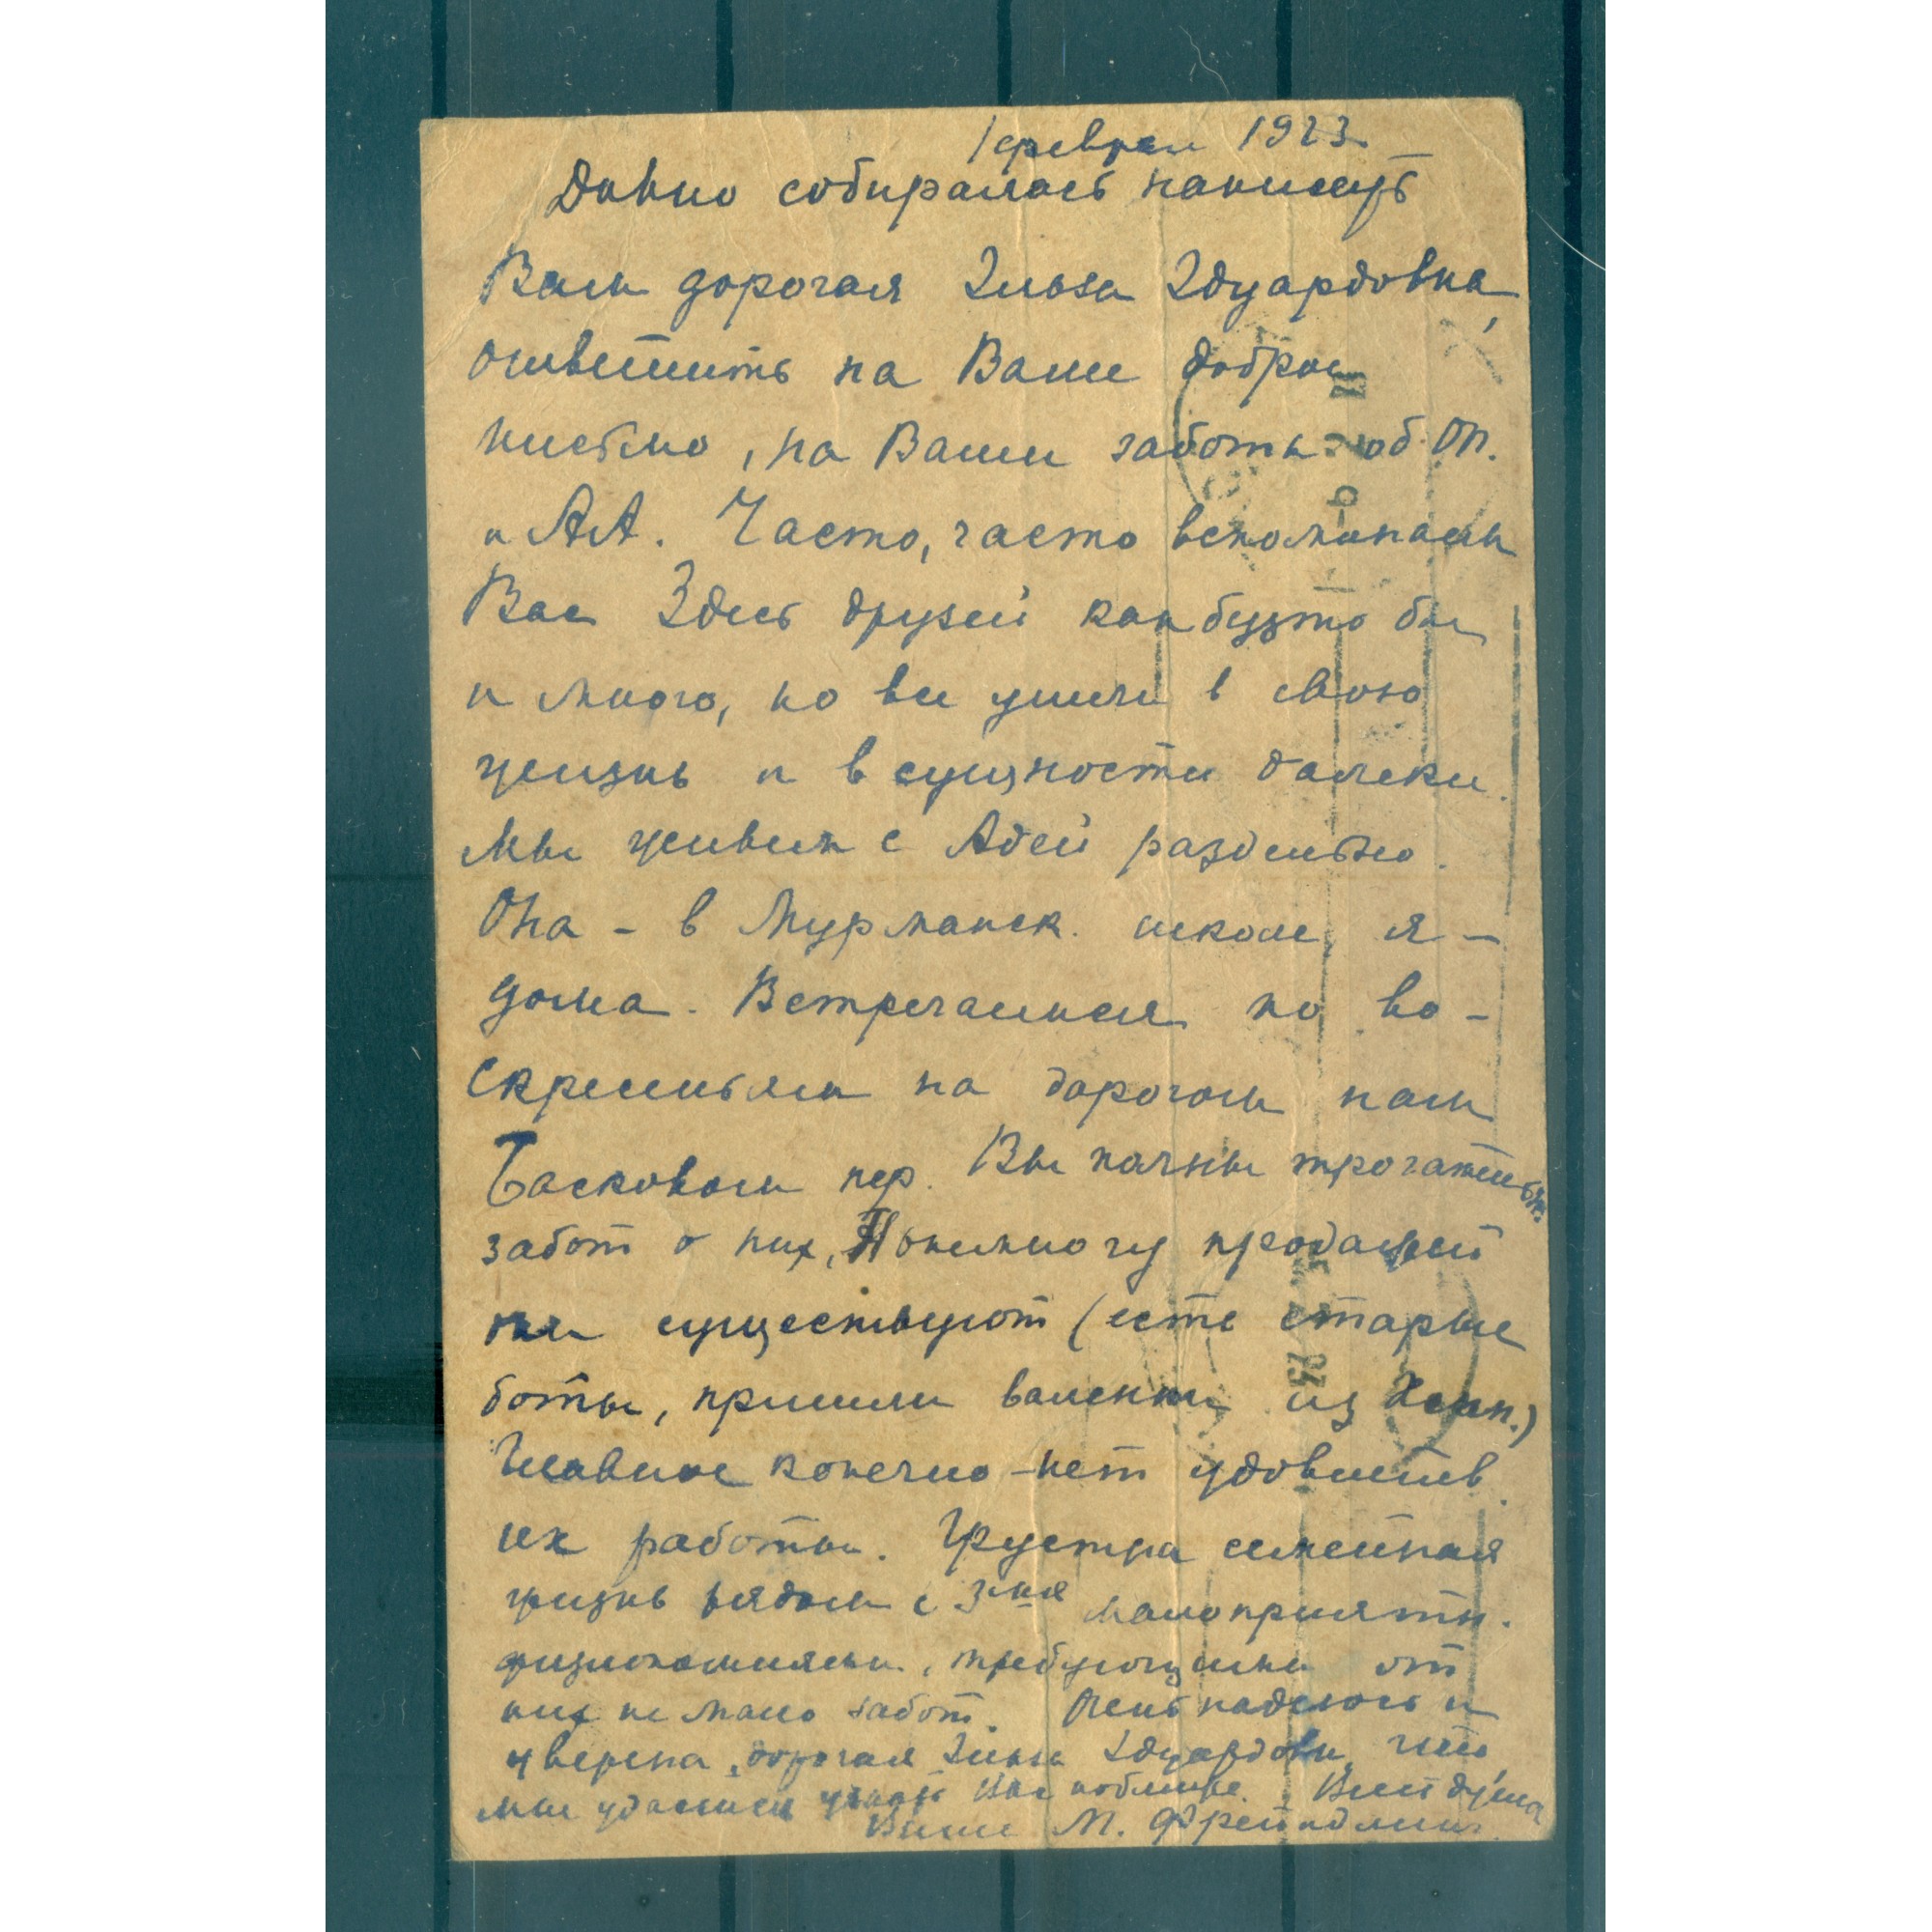 1 февраля 1923.
Давно собиралась написать
Вам дорогая Эльза Эдуардовна,
ответить на Ваше доброе
письмо, на Ваши заботы об ОП.
и АА. Часто, часто вспоминаем
Вас Здесь друзей как будто бы
и много, но все ушли в свою
жизнь и в сущности далеки.
Мы живем с Адей раздельно.
Она - в Мурманск. школе, я -
дома. Встречаемся по во-
скресеньям на дорогом нам
Басковом пер. Вы полны трогательн.
забот о них, Понемногу продажей
они существуют (есть старые
боты, пришли валенки из
Главное конечно - нет удовлетв.
их работы. Грустна семейная
жизнь рядом с 3мя малоприятн.
физиономиями, требующими от
них не мало забот. Очень надеюсь и
уверена, дорогая Эльза Эдуардовн, что
мне удастся узнать Вас поближе. Всей душа
Ваша М. Фрейндлинг